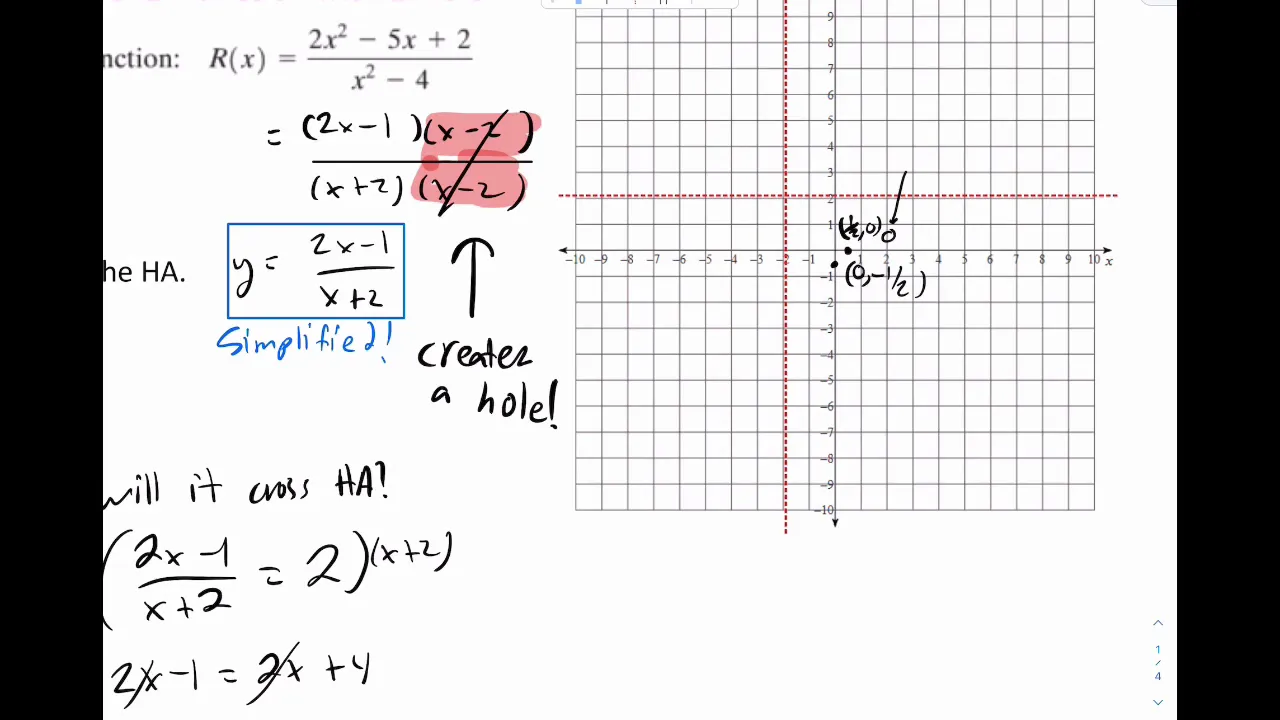 nction: R(x) = (2x² − 5x + 2)/(x² − 4)
= ((2x−1)(x−2))/((x+2)(x−2))
he HA.
y = (2x−1)/(x+2)
Simplified!
creates
a hole!
will it cross HA?
((2x−1)/(x+2) = 2)(x+2)
2x −1 = 2x +4
9
8
7
6
5
4
3
2
1
(½,0)
−10 −9 −8 −7 −6 −5 −4 −3 −2 −1 1 2 3 4 5 6 7 8 9 10 x
(0,−1/2)
−1
−2
−3
−4
−5
−6
−7
−8
−9
−10
1
/
4